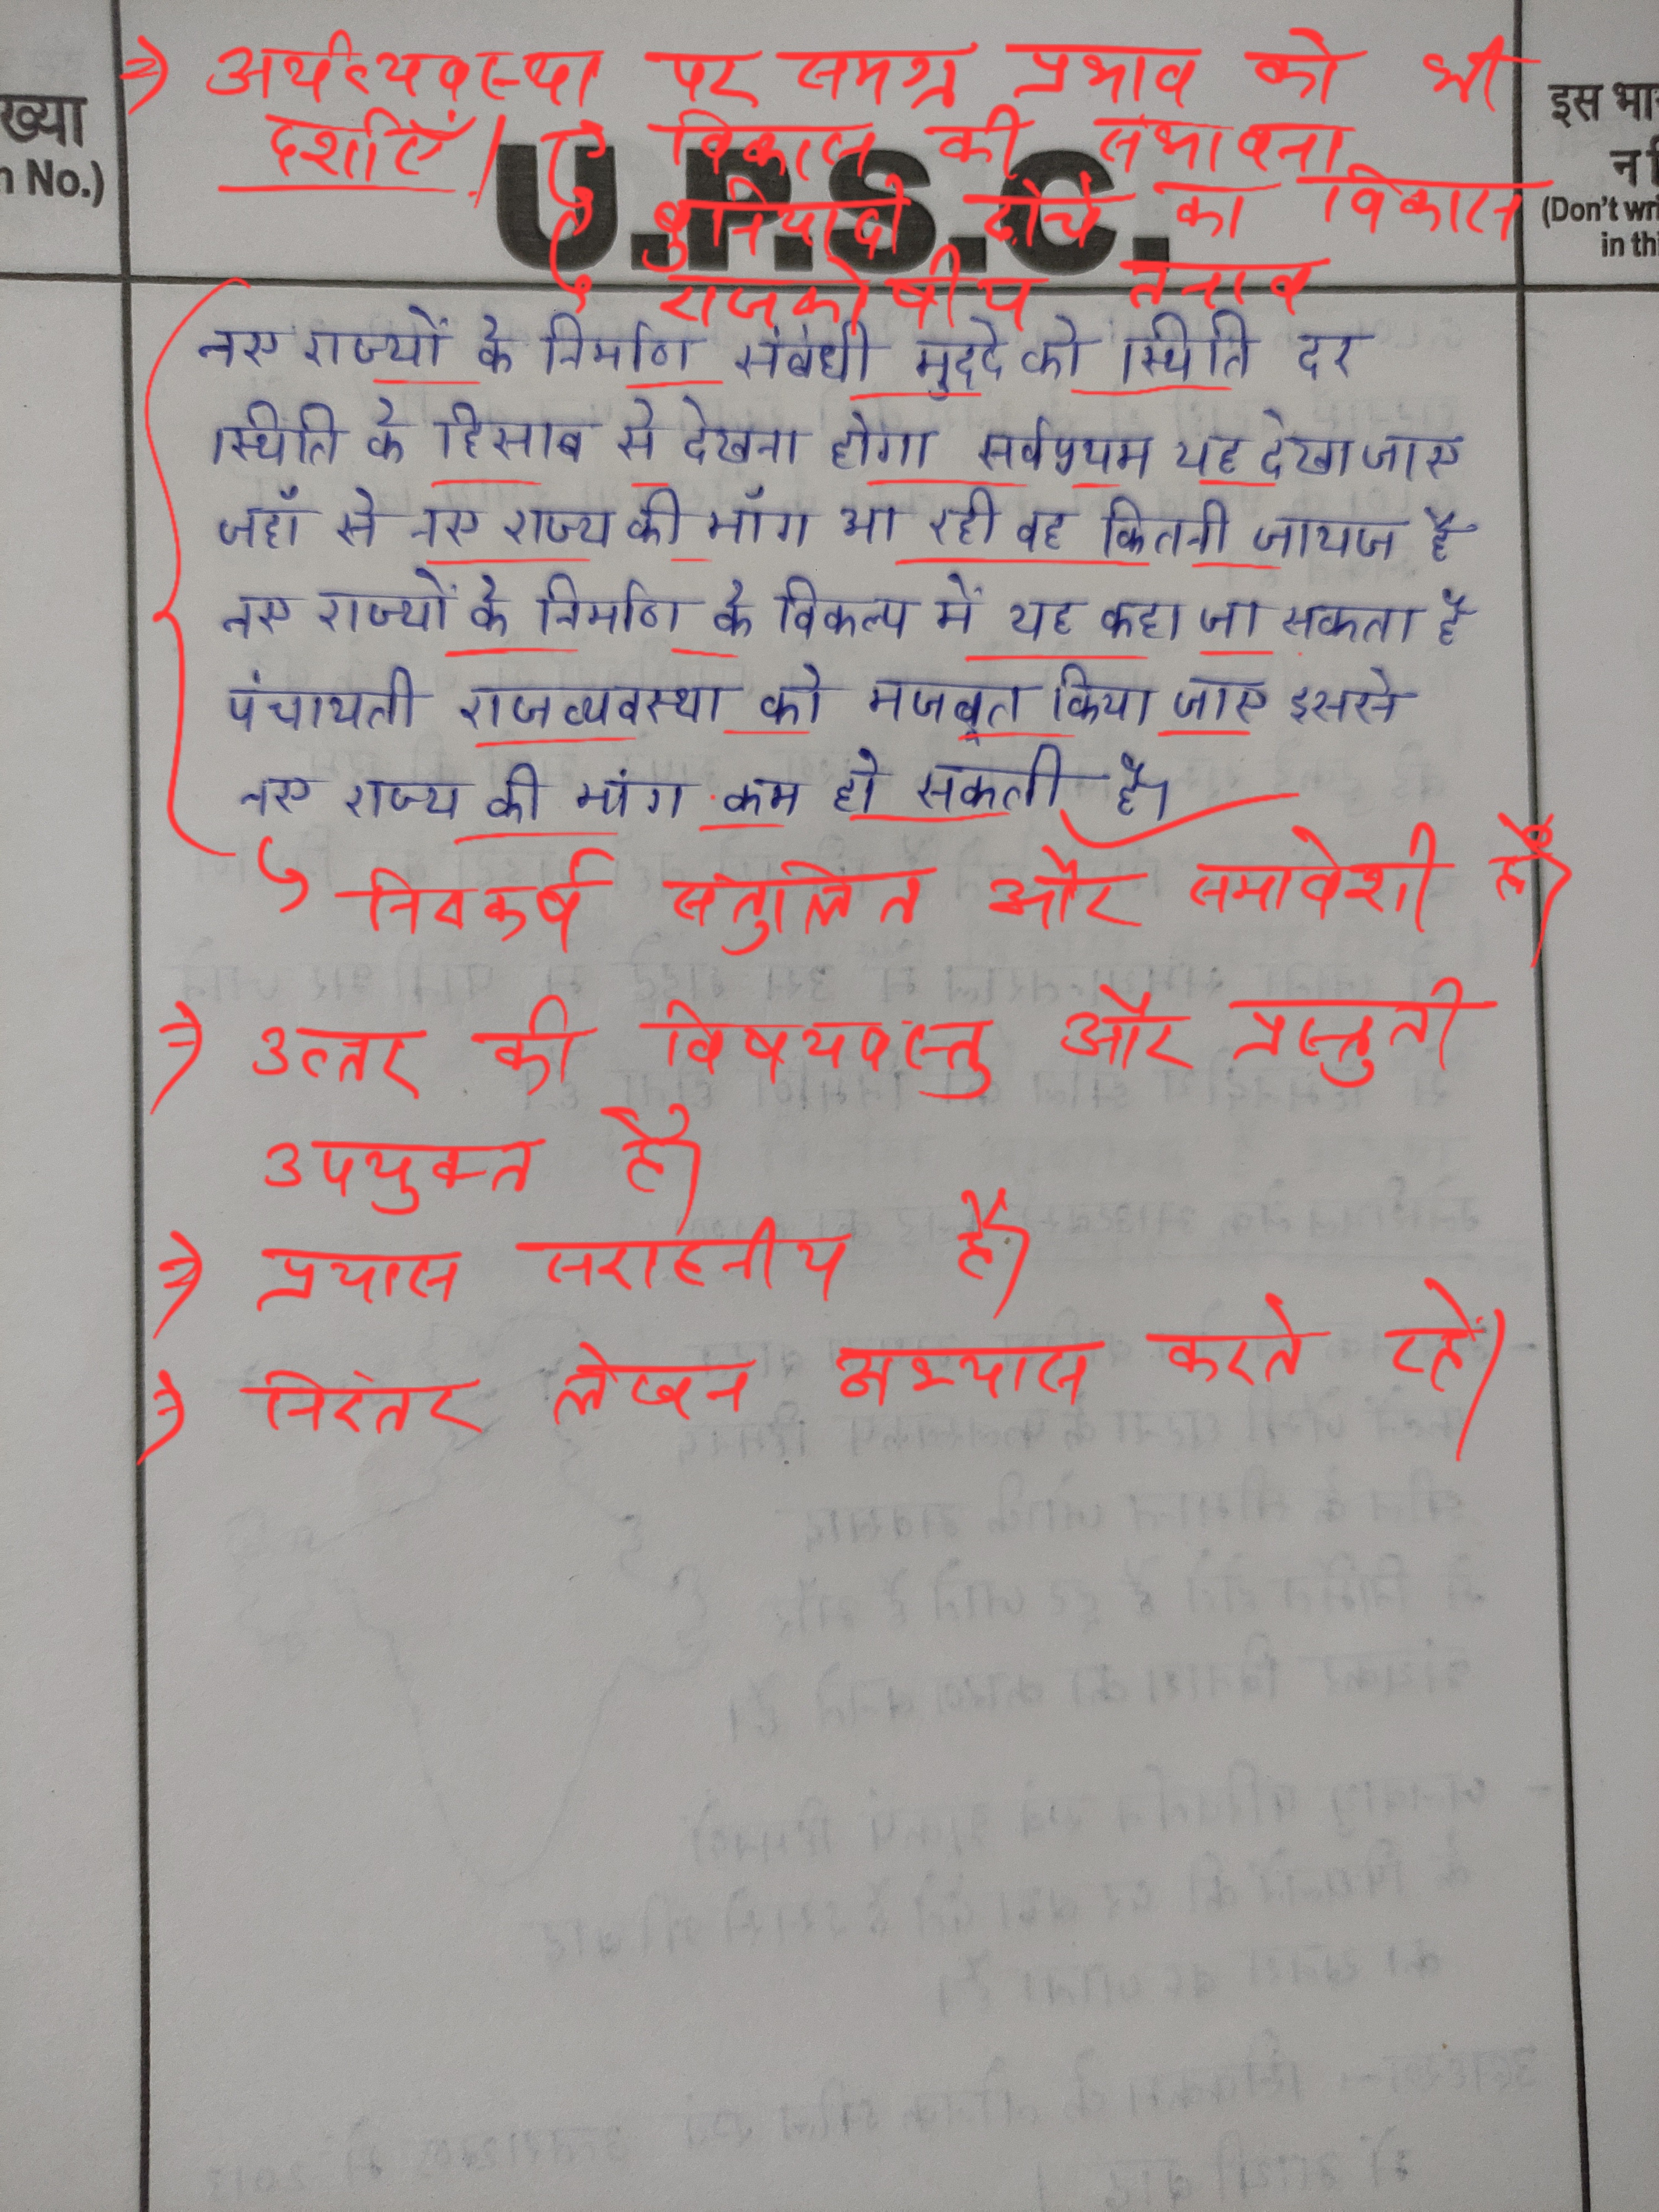 ⇒ अर्थव्यवस्था पर समग्र प्रभाव को भी
दर्शाएँ।
→ विकास की संभावना
→ बुनियादी ढाँचे का विकास
→ राजकोषीय तनाव
ख्या
n No.)
U.P.S.C.
इस भा
न f
(Don't wri
in thi
नए राज्यों के निर्माण संबंधी मुद्दे को स्थिति दर
स्थिति के हिसाब से देखना होगा सर्वप्रथम यह देखा जाए
जहाँ से नए राज्य की माँग आ रही वह कितनी जायज है
नए राज्यों के निर्माण के विकल्प में यह कहा जा सकता है
पंचायती राजव्यवस्था को मजबूत किया जाए इससे
नए राज्य की मांग कम हो सकती है।
↳ निष्कर्ष संतुलित और समावेशी है।
⇒ उत्तर की विषयवस्तु और प्रस्तुती
उपयुक्त है।
⇒ प्रयास सराहनीय है।
⇒ निरंतर लेखन अभ्यास करते रहें।